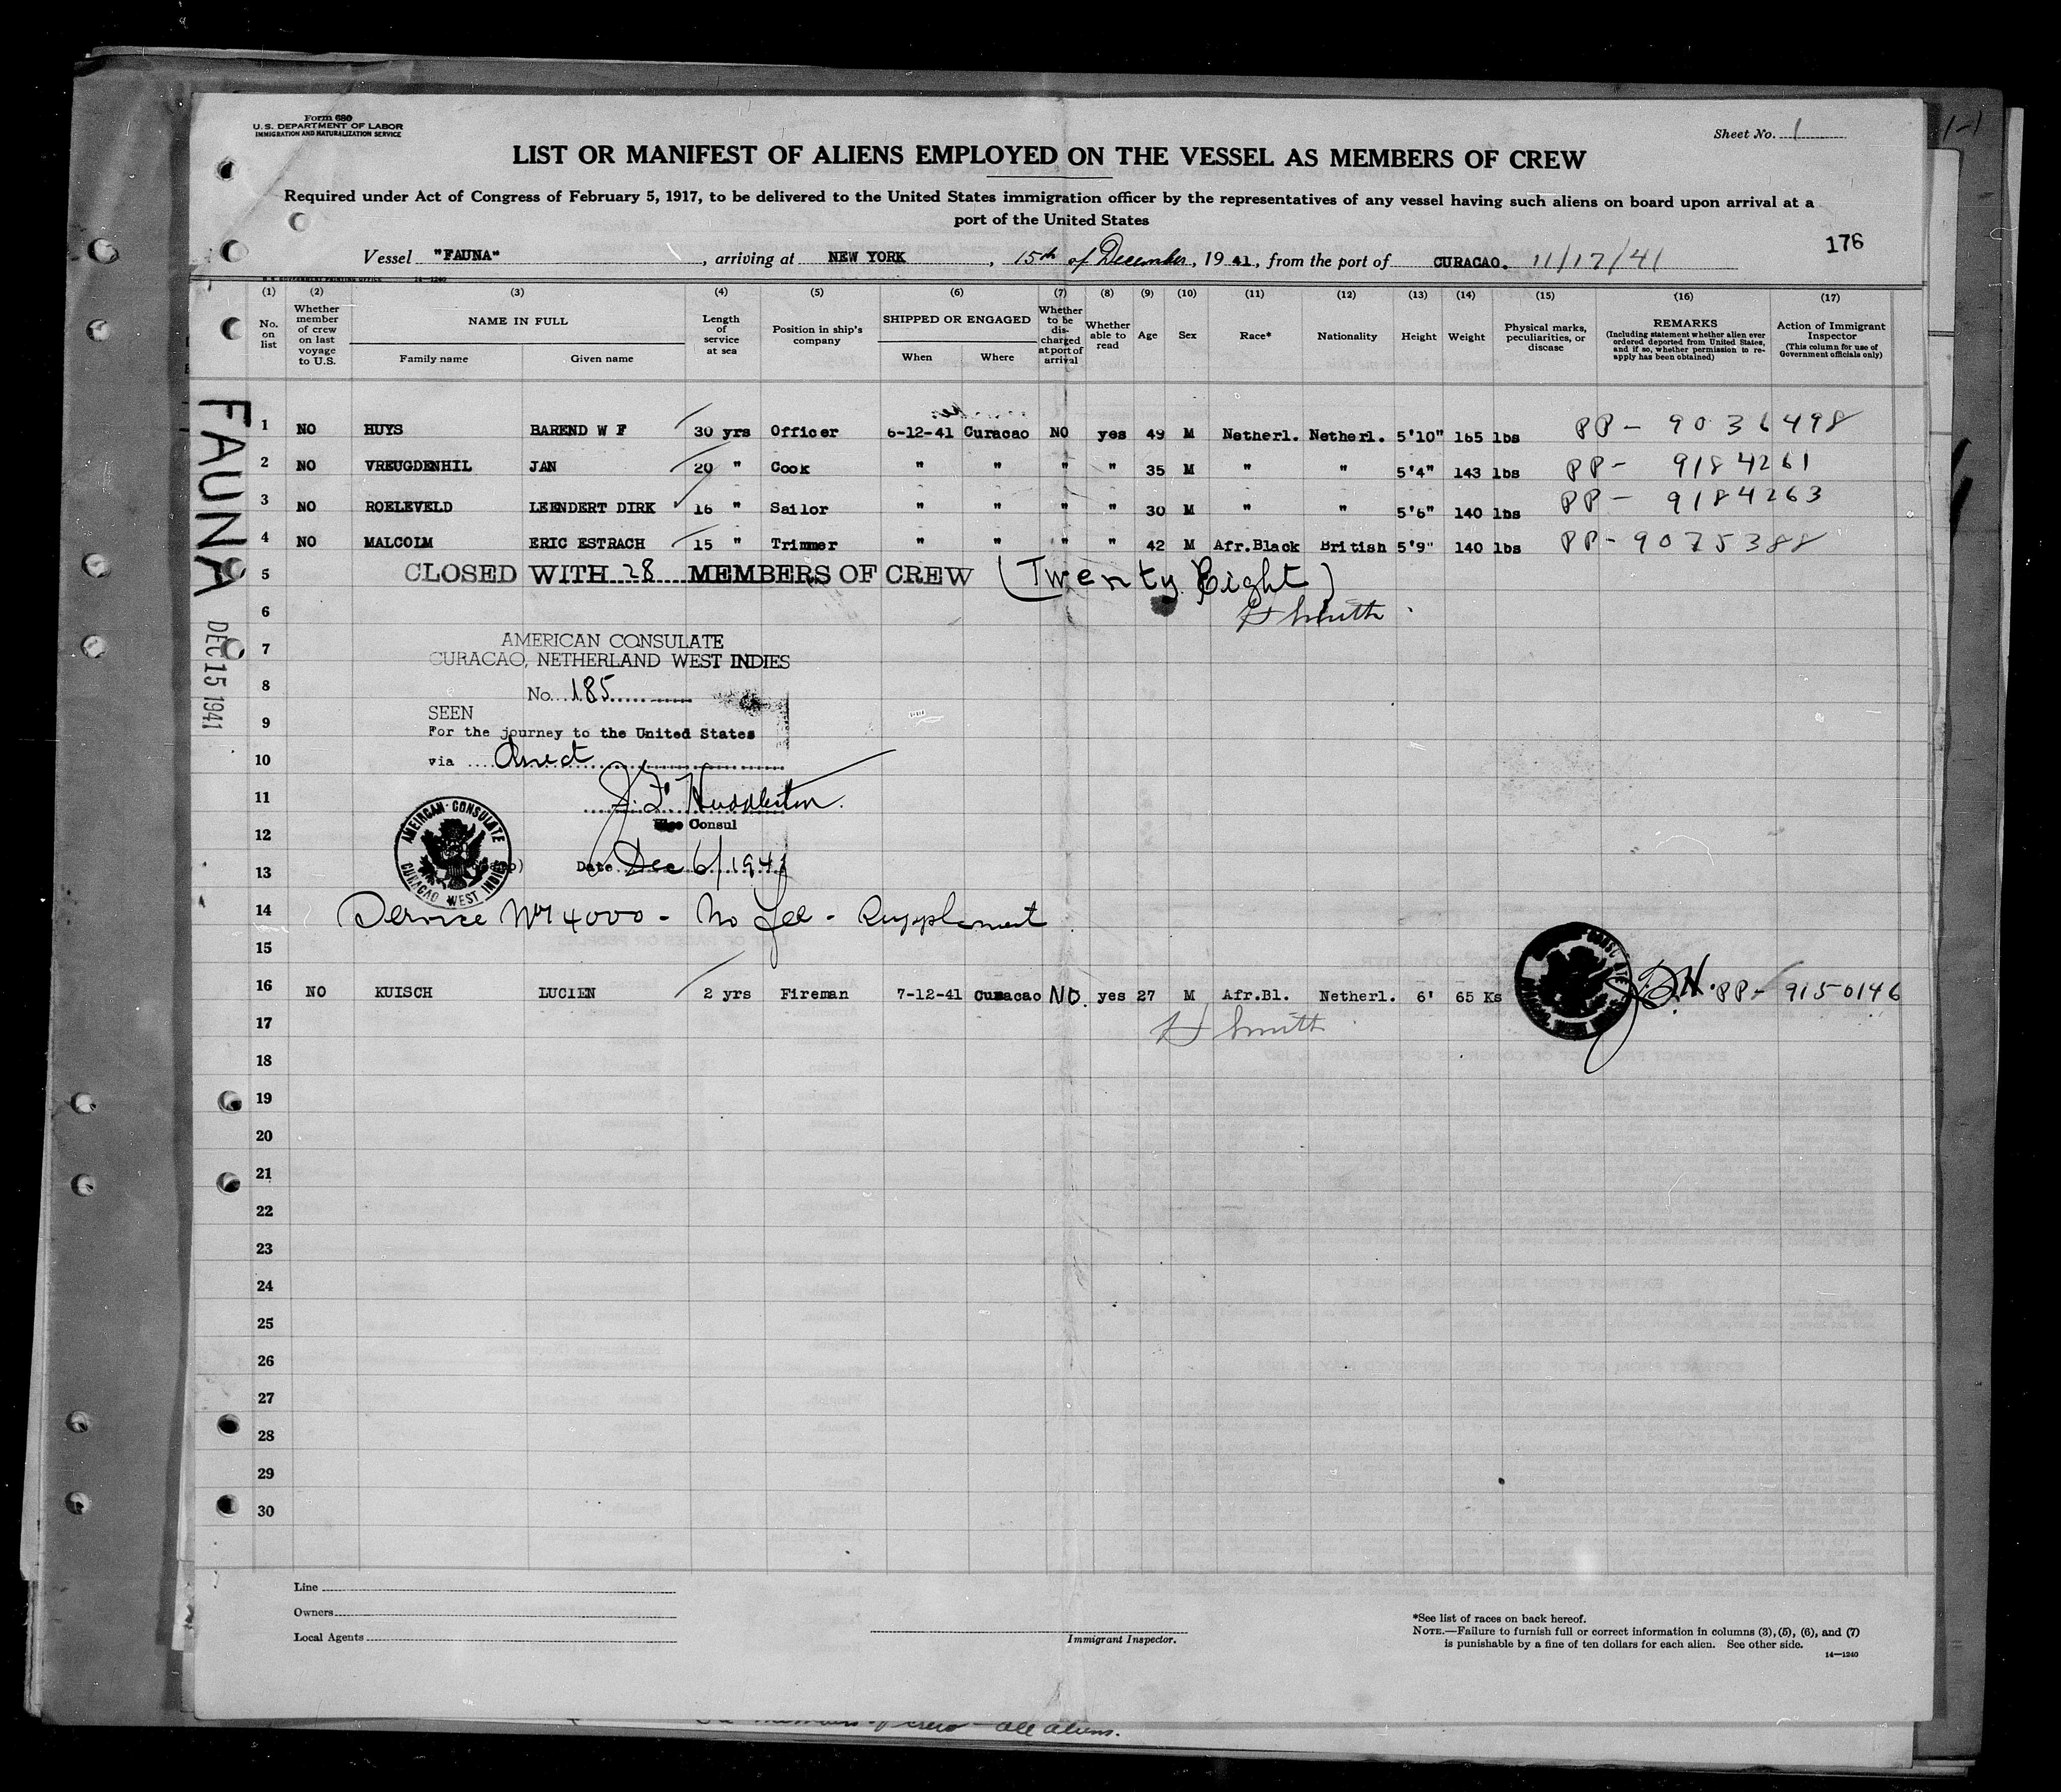 Form 680
U.S. DEPARTMENT OF LABOR
IMMIGRATION AND NATURALIZATION SERVICE
Sheet No. 1
LIST OR MANIFEST OF ALIENS EMPLOYED ON THE VESSEL AS MEMBERS OF CREW
Required under Act of Congress of February 5, 1917, to be delivered to the United States immigration officer by the representatives of any vessel having such aliens on board upon arrival at a
port of the United States
176
Vessel "FAUNA", arriving at NEW YORK, 15th of December, 1941, from the port of CURACAO. 11/17/41
(1) (2) (3) (4) (5) (6) (7) (8) (9) (10) (11) (12) (13) (14) (15) (16) (17)
No. on list
Whether member of crew on last voyage to U.S.
NAME IN FULL
Family name
Given name
Length of service at sea
Position in ship's company
SHIPPED OR ENGAGED
When
Where
Whether to be discharged at port of arrival
Whether able to read
Age
Sex
Race*
Nationality
Height
Weight
Physical marks, peculiarities, or disease
REMARKS
(Including statement whether alien ever ordered deported from United States, and if so, whether permission to re-apply has been obtained)
Action of Immigrant Inspector
(This column for use of Government officials only)
FAUNA
DEC 15 1941
1 NO HUYS BAREND W F 30 yrs Officer 6-12-41 Curacao NO yes 49 M Netherl. Netherl. 5'10" 165 lbs PP - 9036498
2 NO VREUGDENHIL JAN 20 " Cook " " " " 35 M " " 5'4" 143 lbs PP - 9184261
3 NO ROELEVELD LEENDERT DIRK 16 " Sailor " " " " 30 M " " 5'6" 140 lbs PP - 9184263
4 NO MALCOLM ERIC ESTRACH 15 " Trimmer " " " " 42 M Afr.Black British 5'9" 140 lbs PP - 9075388
5 CLOSED WITH 28 MEMBERS OF CREW (Twenty Eight)
6 H Smith
7 AMERICAN CONSULATE
CURACAO, NETHERLAND WEST INDIES
8 No. 185
SEEN
9 For the journey to the United States
10 via Direct
11 J. F. Huddleston
12 Consul
13 Date Dec 6/1941
AMERICAN CONSULATE CURACAO WEST INDIES
14 Service No 4000 - No fee - Supplement
15
16 NO KUISCH LUCIEN 2 yrs Fireman 7-12-41 Curacao NO. yes 27 M Afr.Bl. Netherl. 6' 65 Ks PP - 9150146
17 H Smith
18
19
20
21
22
23
24
25
26
27
28
29
30
Line
Owners
Local Agents
Immigrant Inspector.
*See list of races on back hereof.
NOTE.—Failure to furnish full or correct information in columns (3), (5), (6), and (7)
is punishable by a fine of ten dollars for each alien. See other side.
14—1240
members of crew - all aliens.